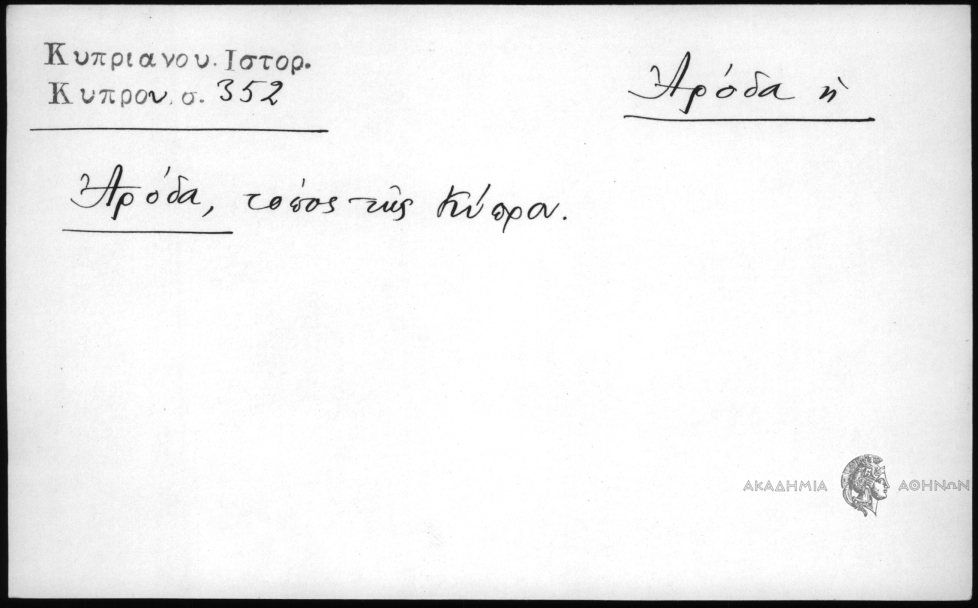 Κυπριανου. Ιστορ.
Κυπρου. σ. 352
Ἀρόδα ἡ
Ἀρόδα, τόπος τῆς Κύπρου.
ΑΚΑΔΗΜΙΑ ΑΘΗΝΩΝ